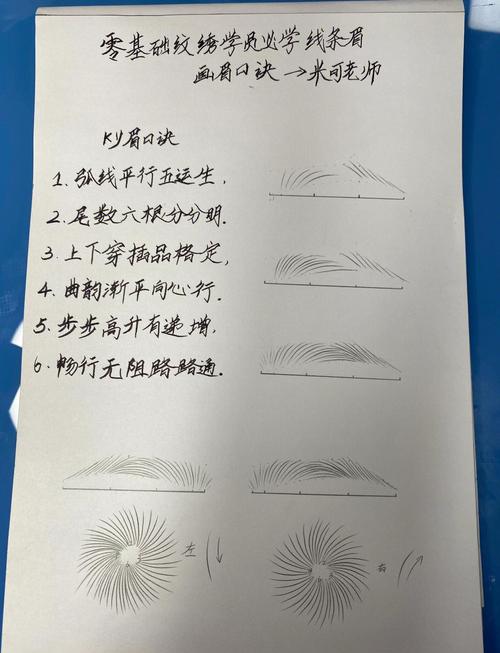 零基础纹绣学员必学线条眉
画眉口诀→米可老师
KY眉口诀
1、弧线平行五运生,
2、尾数六根分分明.
3、上下穿插品格定,
4、曲韵渐平同心行.
5、步步高升有递增,
6、畅行无阻路路通.
左
右